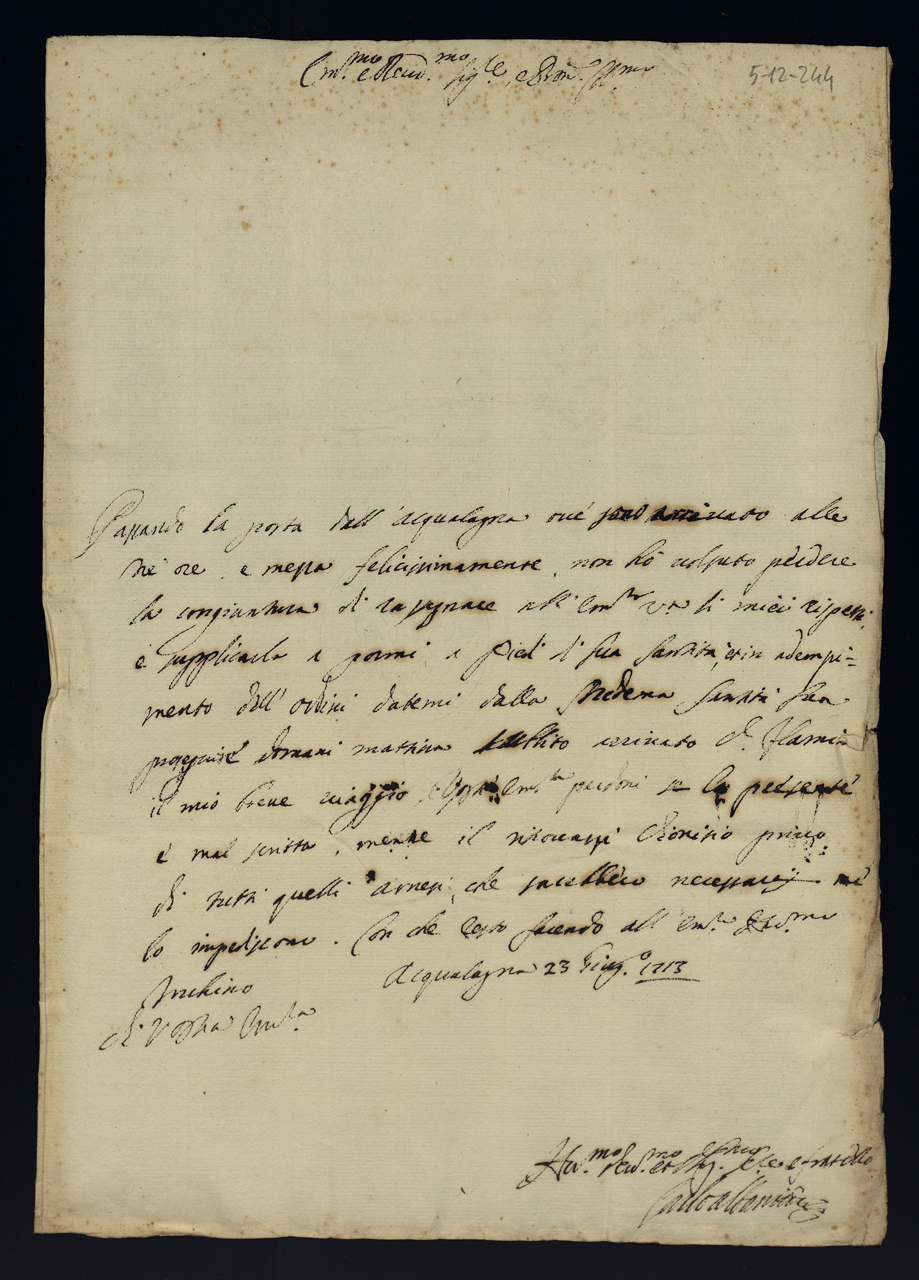 Em.mo e Reud.mo Sig.re, e Pron.
5-12-244
Passando la posta dall'acqualagna oue sono arriuato alle
trè ore e mezza felicissimamente, non hò uoluto perdere
la congiuntura di rassegnare all'Em.za V.ra li miei rispetti,
e supplicarla a pormi a Piedi di sua Santità, et in adempi=
mento dell'ordini datemi dalla Medema Santità sua
proseguirè domani mattina subbito arriuato D. Flaminio
il mio breue uiaggio, Em.za perdoni se la presente
è mal scritta, mentre il ritrouarsi Dionisio priuo
di tutti quelli arnesi, che sarebbero necessarij mè
lo impediscono. Con che resto facendo all'Em.za
Inchino Acqualagna 23 Giug.o 1713
di Vostra Em.za
Hu.mo Deu.mo et Seru.re e fratello
Carlo Albani